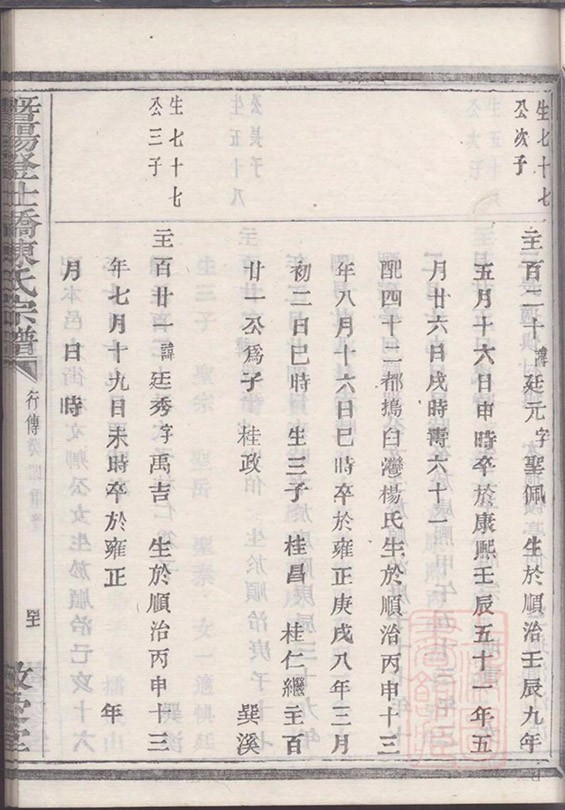 生七十七
公次子
圭百二十諱廷元字聖佩 生於順治壬辰九年
五月十六日申時卒於康熙壬辰五十一年五
月廿六日戌時壽六十一
配四十二都搗臼灣楊氏生於順治丙申十三
年八月十六日巳時卒於雍正庚戌八年三月
初二日巳時 生三子 桂昌 桂仁繼圭百
廿一公為子 桂政 巽溪
生七十七
公三子
圭百廿一諱廷秀字禹吉 生於順治丙申十三
年七月十九日未時卒於雍正 年
月 日 時
暨陽登仕橋陳氏宗譜
行傳